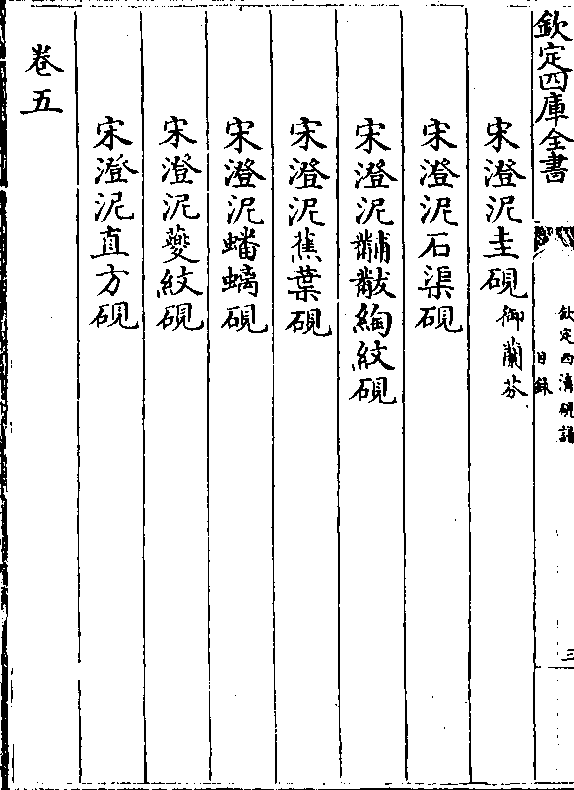 欽定四庫全書
欽定西清硯譜
目錄
三
宋澄泥圭硯 御蘭芬
宋澄泥石渠硯
宋澄泥黼黻綯紋硯
宋澄泥蕉葉硯
宋澄泥蟠螭硯
宋澄泥夔紋硯
宋澄泥直方硯
卷五